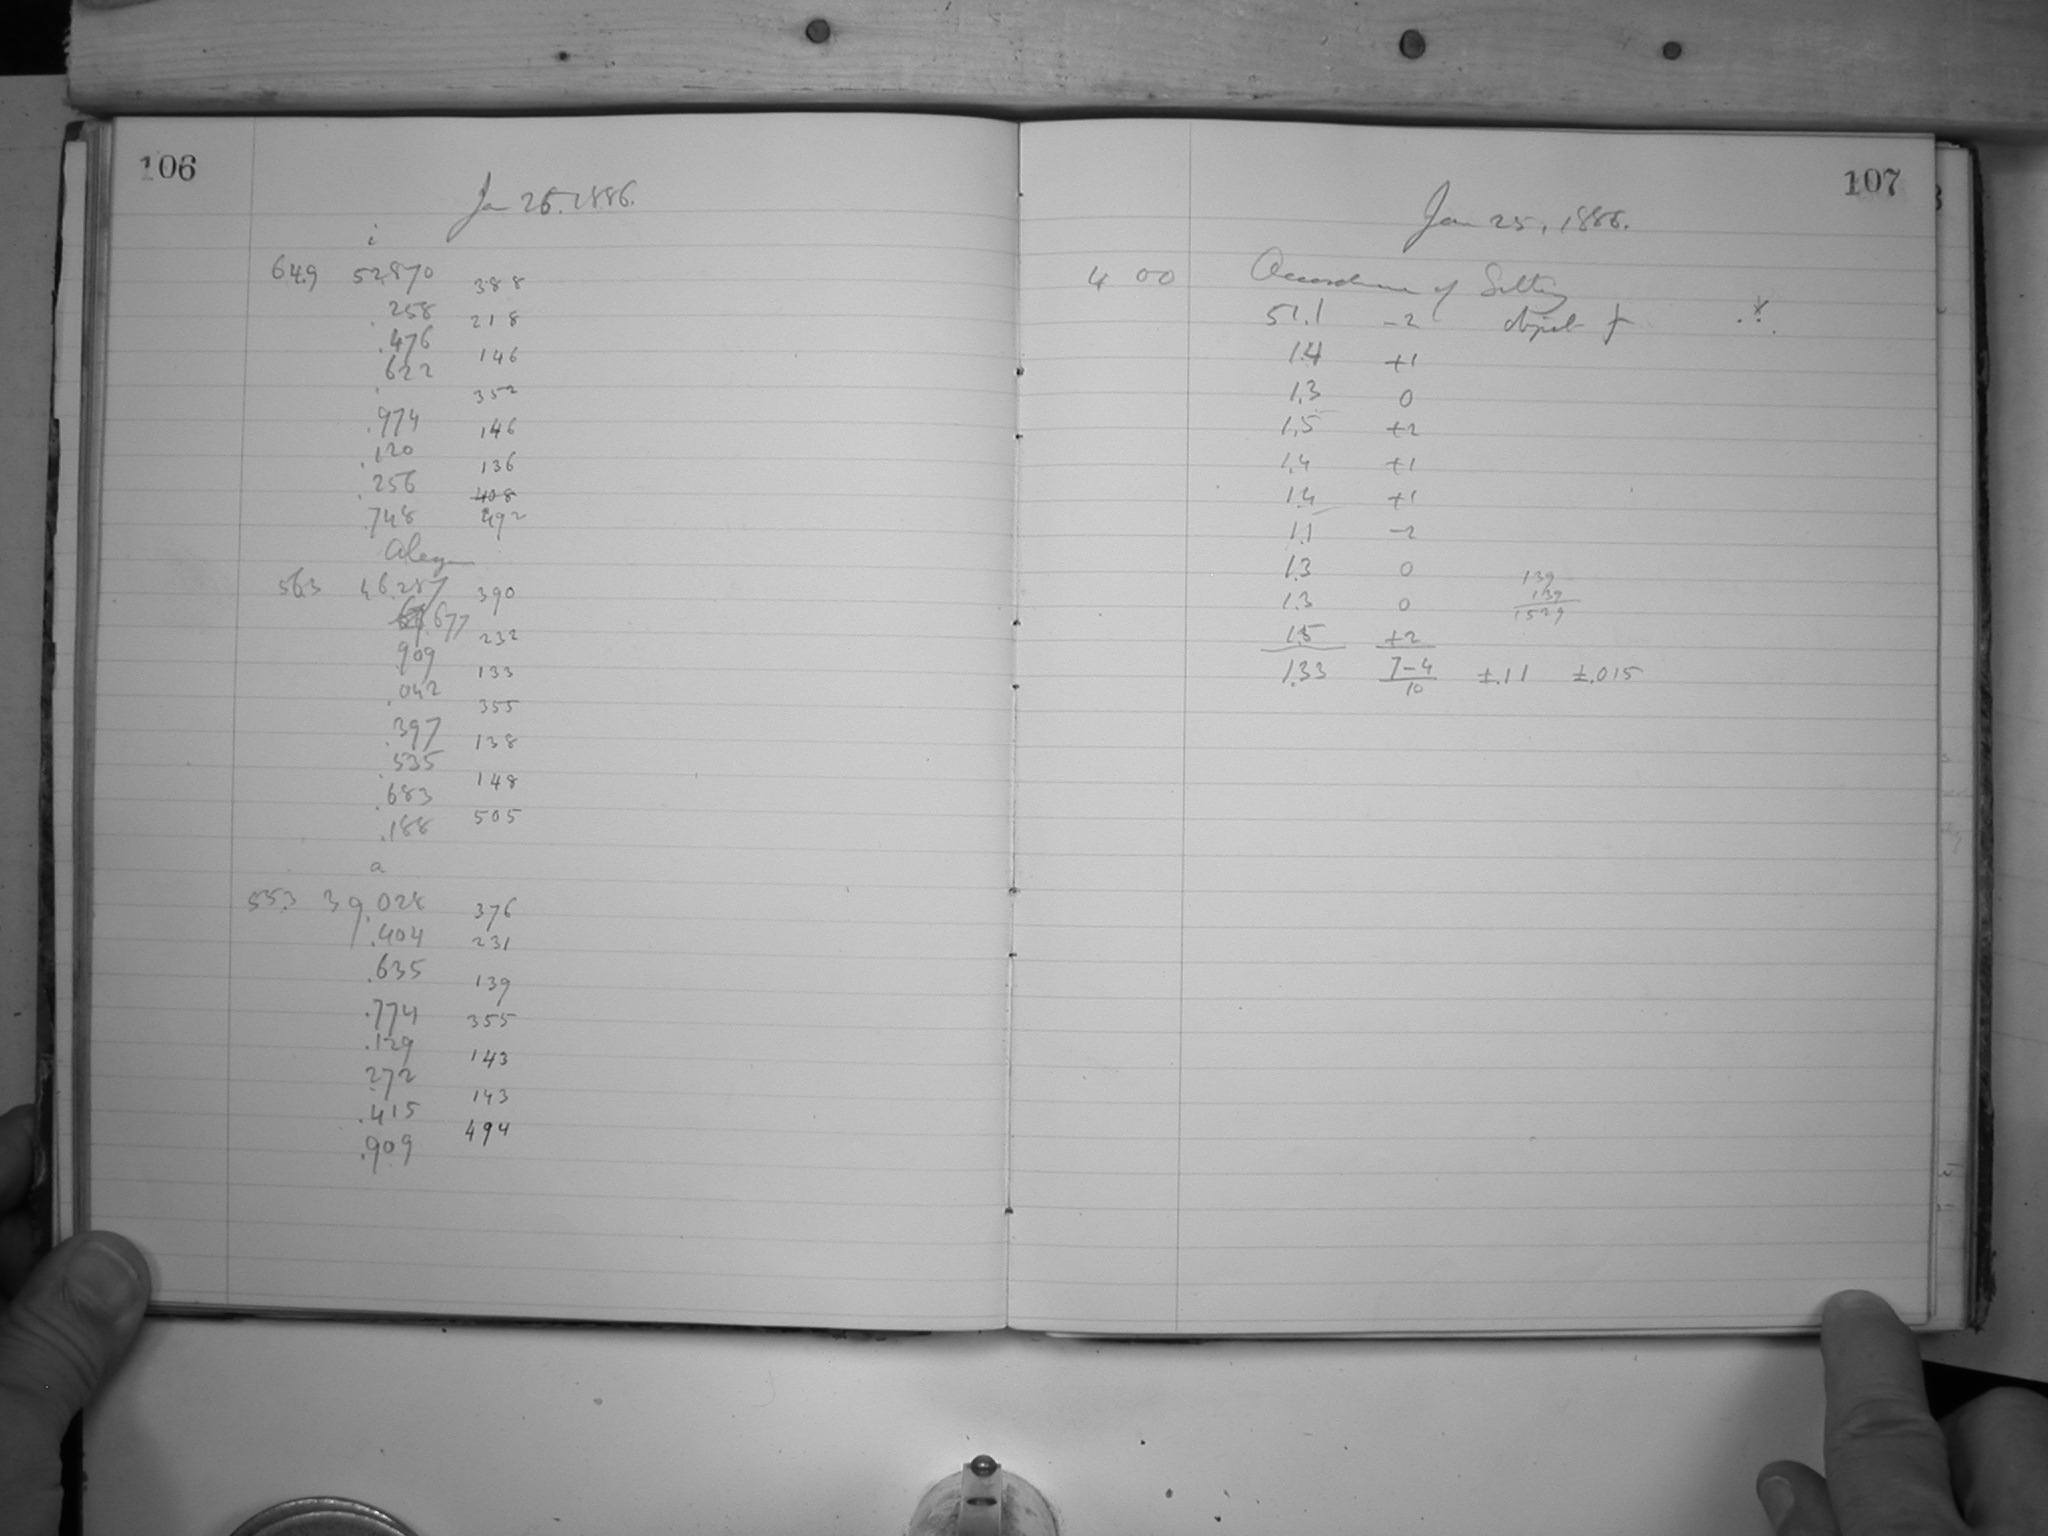 106
Jan 25. 1886.
i
649 52.870 388
.258 218
.476 146
.622 352
.974 146
.120 136
.256 408
.748 492
563 46.287 390
.677 232
.909 133
.042 355
.397 138
.535 148
.683 505
.188
a
553 39.028 376
.404 231
.635 139
.774 355
.129 143
.272 143
.415 494
.909
107
Jan 25, 1886.
4 00 Accordance of Setting
51.1 -2 object f
1.4 +1
1.3 0
1.5 +2
1.4 +1
1.4 +1
1.1 -2
1.3 0 139
1.3 0 139
1529
1.5 +2
1.33 7-4 ±.11 ±.015
10